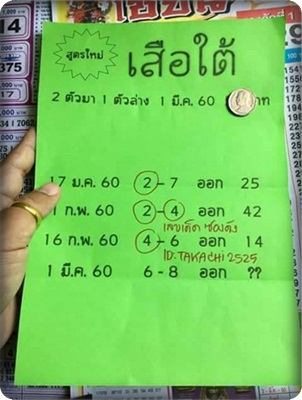 สูตรใหม่
เสือใต้
2 ตัวมา 1 ตัวล่าง 1 มี.ค. 60 บาท
17 ม.ค. 60 2-7 ออก 25
1 ก.พ. 60 2-4 ออก 42
เลขเด็ด ซองดัง
16 ก.พ. 60 4-6 ออก 14
ID.TAKACHI2525
1 มี.ค. 60 6-8 ออก ??